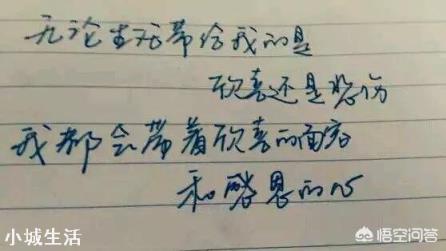 无论生活带给我的是
欣喜还是悲伤
我都会带着欣喜的面容
和感恩的心
小城生活
悟空问答